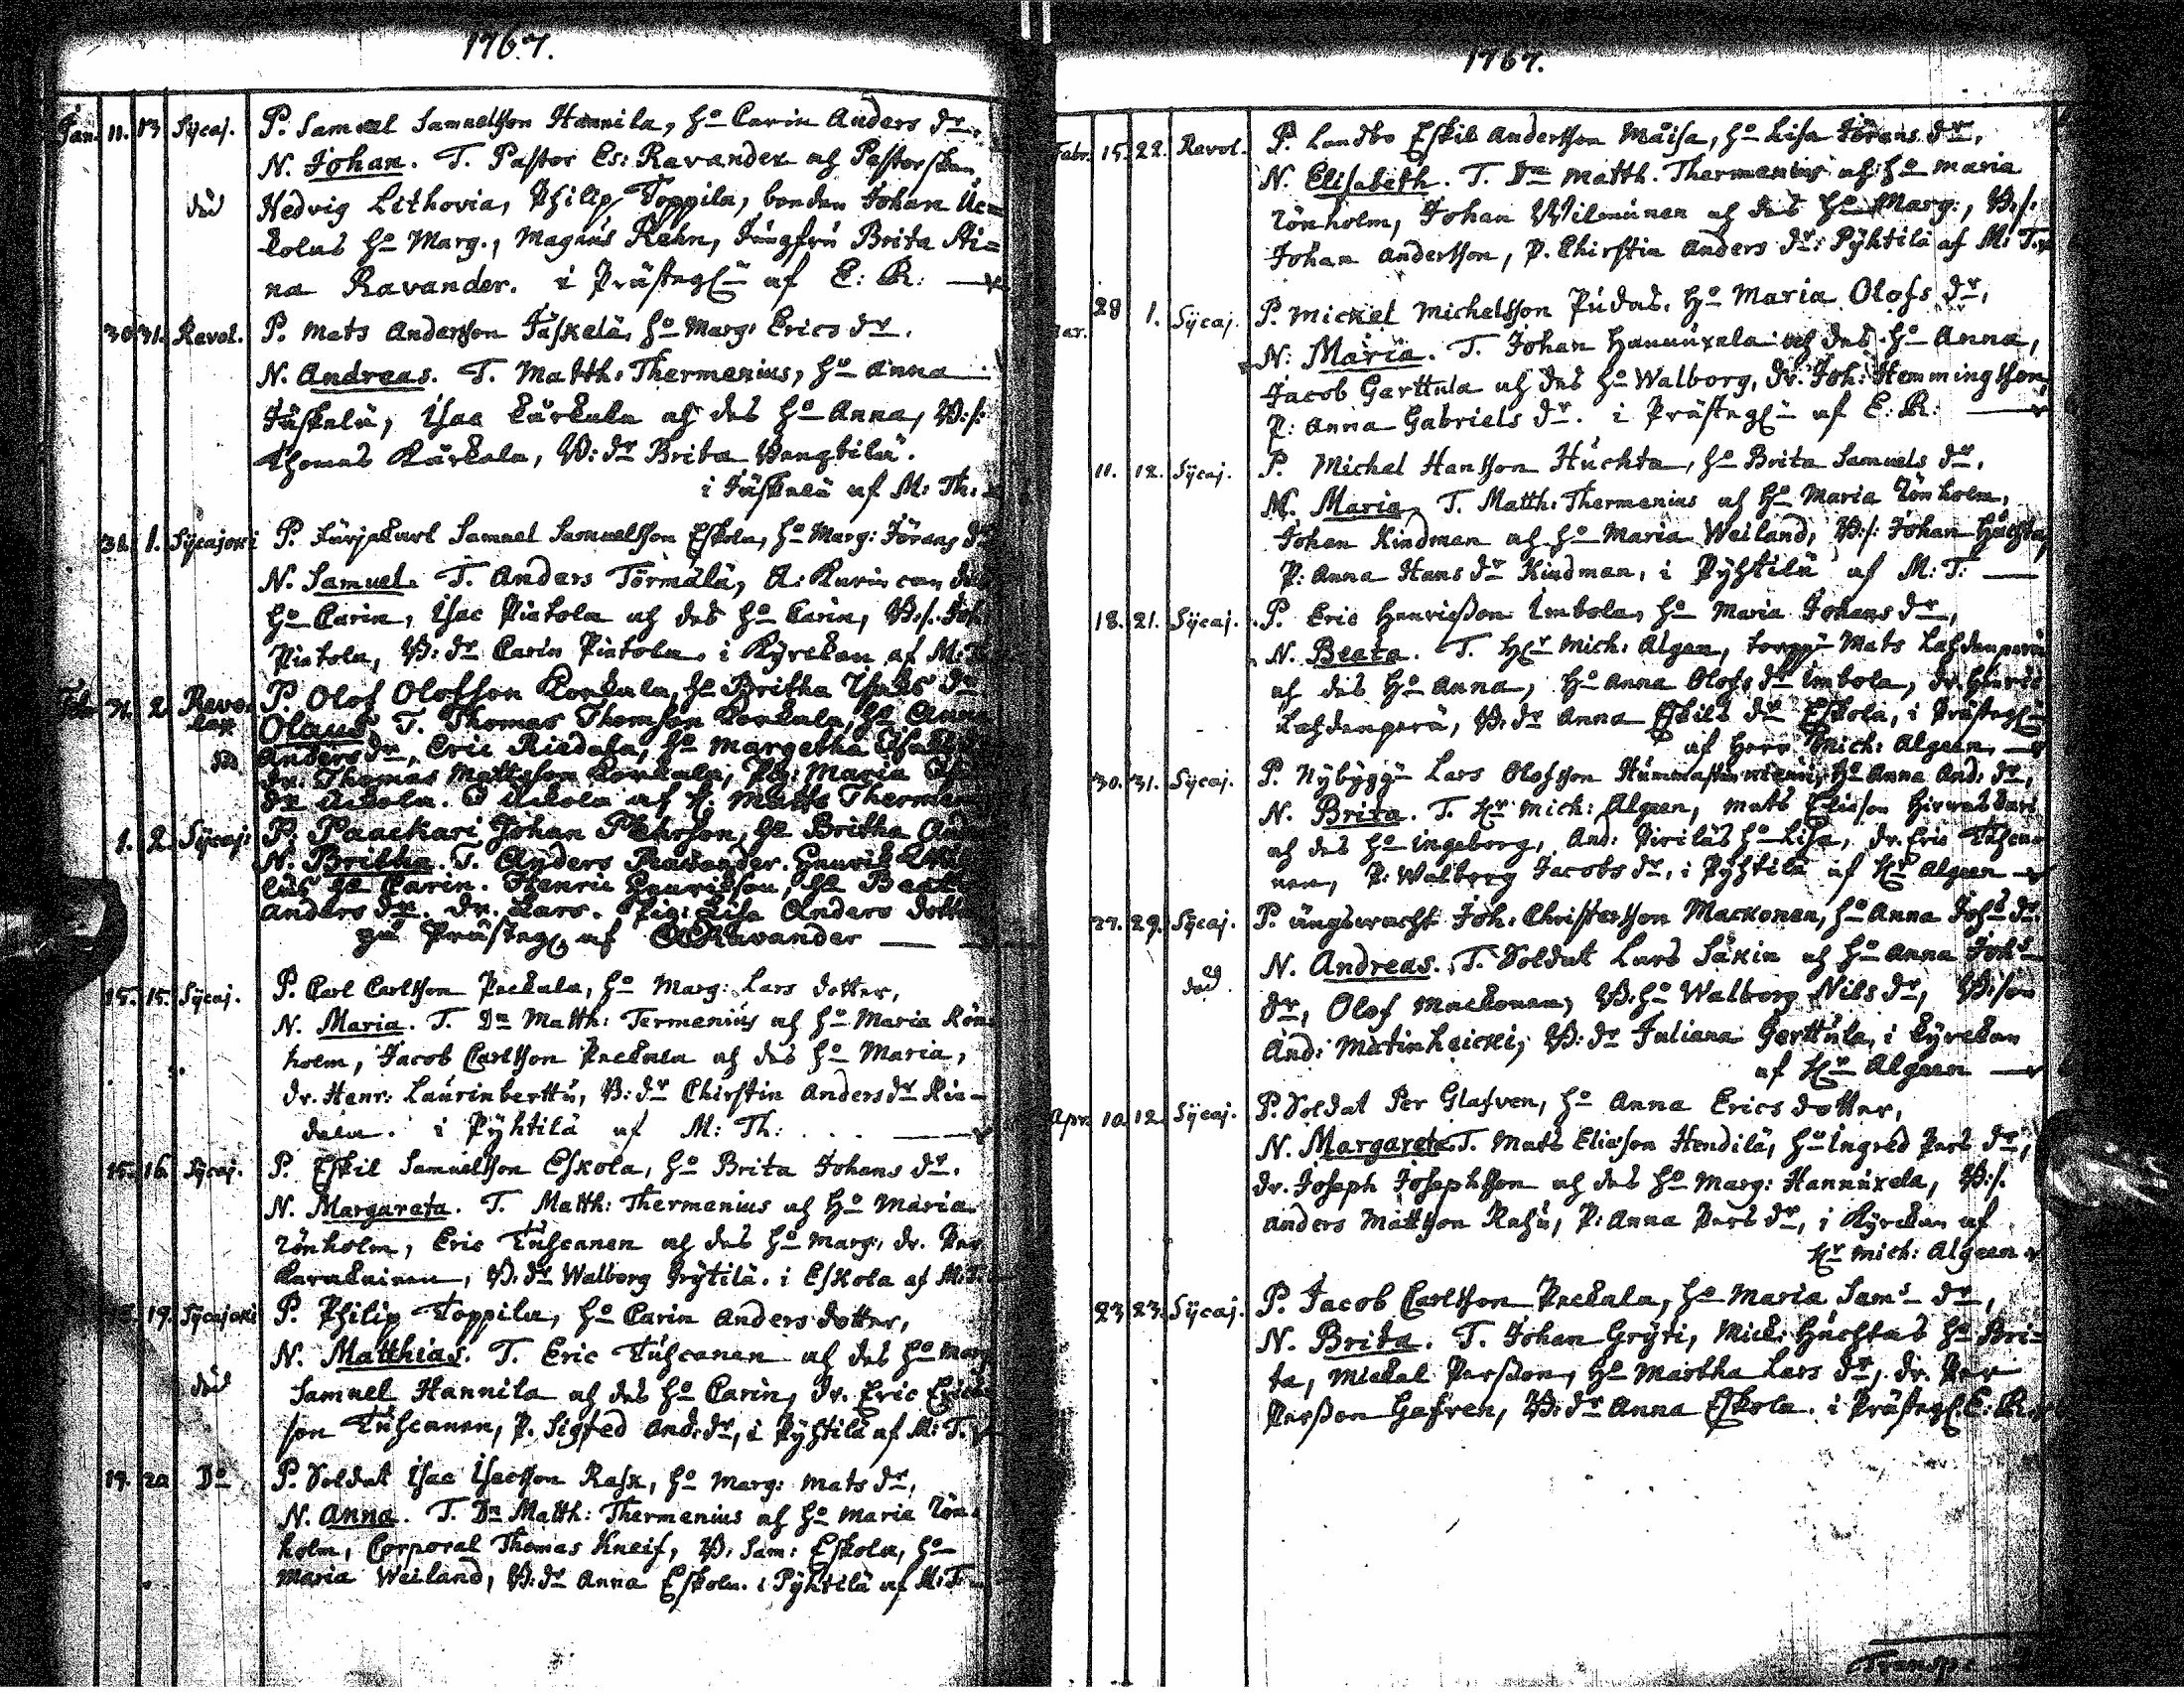 1767.
Jan. 11. 13 Sÿcaj. P. Samuel Samuelsson Hannila, ho Carin Anders dr.
N. Johan. T. Pastor Es: Ravander och Pastorskan
död Hedvig Lithovia, Philip Toppila, bonden Johan Uc=
kolas ho Marg., Magnus Rehn, Jungfru Brita Sti=
na Ravander. i Prästegln af E: R:
30 31. Revol. P. Mats Andersson Jäskelä, ho Marg: Erics dr.
N. Andreas. T. Matth: Thermenius, ho Anna
Jäskelä, Isac Kärkula och des ho Anna, B:s:
Thomas Kärkula, B: dr Brita
i Jäskelä af M: Th:
31. 1. Sÿcajoki P. Samuel Samuelsson Eskola, ho Marg: Jörans dr
N. Samuel. T. Anders Törmälä, A: des
ho Carin, Isac Piatola och des ho Carin, B:s: Joh
Piatola, B: dr Carin Piatola. i Kÿrckan af M: T.
Febr 31. 2. Revo= P. Olof Olofsson Korkala, ho Britha Isaks dr
lax Olaus T. Thomas Thomsson Korkala, ho Anna
död Anders dr, Eric Riedala, ho Margetha
dr. Thomas Mattsson Korkala, Pig: Maria
dr Uckola. i Uckola af H. Matts Thermen
1. 2. Sÿcaj: P. Paackari Johan Pehrson, ho Britha And
N. Britha. T. Anders Ravander. Henrik
ho Carin. Henric Henriksson, ho Beat
Anders dr. dr. Lars. Pig: Lisa Anders dotter
på Prästeg. af Ravander
15. 15. Sÿcaj. P. Carl Carlsson Packala, ho Marg: Lars dotter,
N. Maria. T. Dn Matth: Termenius och ho Maria Rön
holm, Jacob Carlsson Packala och des ho Maria,
dr. Henr: Laurinberttu, B: dr Chirstin Anders dr Rie=
dala. i Pÿhtilä af M: Th:
15. 16. Sÿcaj. P. Eskil Samuelsson Eskola, ho Brita Johans dr.
N. Margareta. T. Matth: Thermenius och ho Maria
Rönholm, Eric Tuhcanen och des ho Marg:, dr. Per
Karukainen, B: dr Walborg Prÿtilä. i Eskola af M: T.
19. Sÿcajoki P. Philip Toppila, ho Carin Anders dotter,
N. Matthias. T. Eric Tuhcanen och des ho Marg
död Samuel Hannila och des ho Carin, dr. Eric Erics
son Tuhcanen, P. Sigfred And: dr, i Pÿhtilä af M: T.
19. 20 Do P. Soldat Isac Isacsson Rask, ho Marg: Mats dr,
N. Anna. T. Dn Matth: Thermenius och ho Maria Rön
holm, Corporal Thomas Kneif, B: Sam: Eskola, ho
Maria Weiland, B: dr Anna Eskola. i Pÿhtilä af M: T.
1767.
Febr. 15. 22. Revol. P. Landbo Eskil Andersson Maisa, ho Lisa Jörans dr,
N. Elisabeth. T. Dn Matth. Thermenius och ho Maria
Rönholm, Johan Wilmunen och des ho Marg:, B:s:
Johan Andersson, P. Chirstin Anders dr: Pÿhtilä af M: T.
Mar. 28 1. Sÿcaj. P. Mickel Michelsson Pudas. ho Maria Olofs dr,
N: Maria. T. Johan Hannuxela och des ho Anna,
Jacob Gerttula och des ho Walborg, dr. Joh: Hemmingsson,
P: Anna Gabriels dr. i Prästegln af E: R:
11. 12. Sÿcaj. P. Michel Hansson Huchta, ho Brita Samuels dr,
N. Maria. T. Matth: Thermenius och ho Maria Rönholm,
Johan Kindman och ho Maria Weiland, B:s: Johan Huchta,
P: Anna Hans dr Kindman, i Pÿhtilä af M: T:
18. 21. Sÿcaj. P. Eric Henricsson Imbola, ho Maria Johans dr,
N. Beata. T. Hr Mich: Algen, Mats Lahdenperä
och des ho Anna, ho Anna Olofs dr Imbola, dr. Henric
Lahdenperä, B: dr Anna Eskils dr Eskola, i Prästegln
af Herr Mich: Algeen
30. 31. Sÿcaj. P. Nÿbÿggn Lars Olofsson ho Anna And: dr,
N. Brita. T. Hr Mich: Algeen, Mats Eliason
och des ho Ingeborg, And: Pirilas ho Lisa, dr. Eric Tuhca=
nen, P: Walborg Jacobs dr, i Pÿhtilä af Hr Algeen
27. 29. Sÿcaj. P. ängswacht Joh: Christersson Mackonen, ho Anna Johs dr
N. Andreas. T. Soldat Lars Säkin och ho Anna Johs
död dr, Olof Mackonen, B: ho Walborg Nils dr, B:son
And: Matinheicki, B: dr Juliana Gerttula, i Kÿrckan
af Hr Algeen
Apr. 10. 12. Sÿcaj. P. Soldat Per Glafven, ho Anna Erics dotter,
N. Margareta T. Mats Eliason Hendilä, ho Ingred Pers dr,
dr. Joseph Josephsson och des ho Marg: Hannuxela, B:s:
Anders Mattsson Rahu, P: Anna Pers dr, i Kÿrckan af
Hr Mich: Algeen
23. 23. Sÿcaj. P. Jacob Carlsson Packala, ho Maria Sams dr,
N. Brita. T. Johan Grÿti, Mick: Huchtas ho Bri=
ta, Mickel Persson, ho Martha Lars dr, dr. Per
Persson Gafven, B: dr Anna Eskola. i Prästegl. E: R.